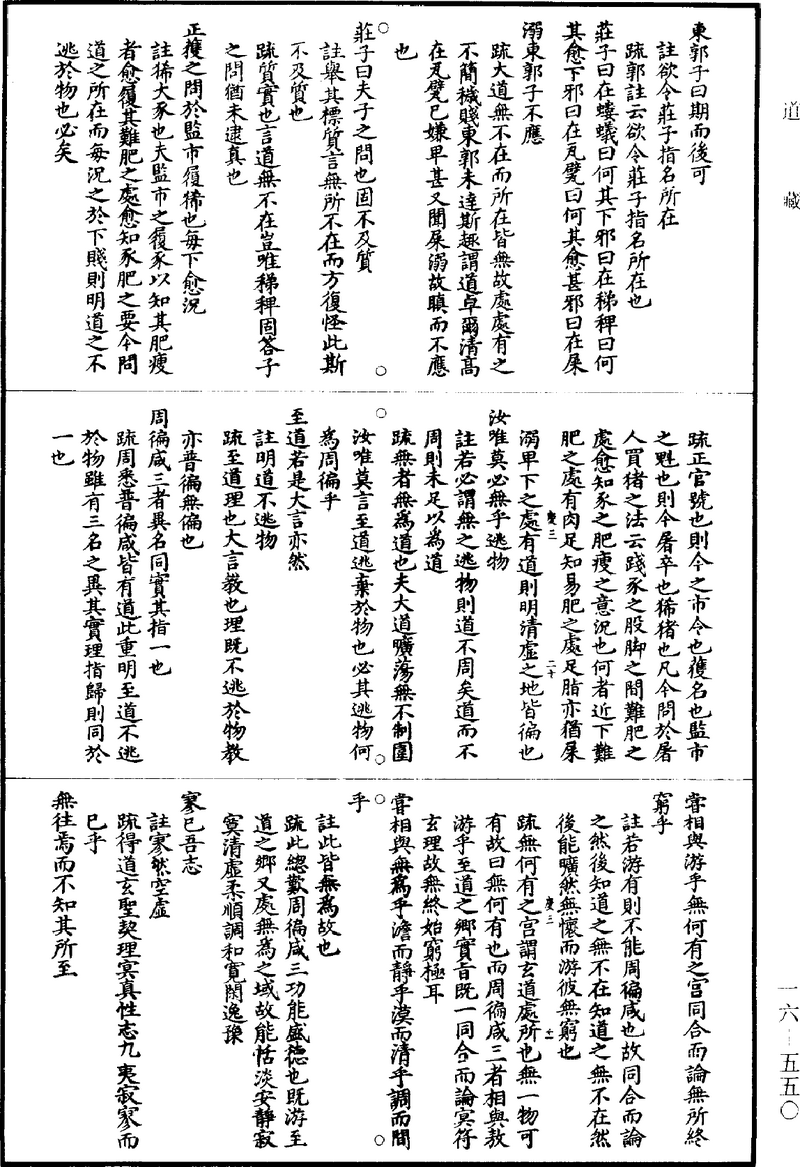 道藏
東郭子曰期而後可
註欲令莊子指名所在
疏郭註云欲令莊子指名所在也
莊子曰在螻蟻曰何其下邪曰在稊稗曰何
其愈下邪曰在瓦甓曰何其愈甚邪曰在屎
溺東郭子不應
疏大道無不在而所在皆無故處處有之
不簡穢賤東郭未達斯趣謂道卓爾清高
在瓦甓已嫌卑甚又聞屎溺故瞋而不應
也
莊子曰夫子之問也固不及質
註舉其標質言無所不在而方復怪此斯
不及質也
疏質實也言道無不在豈唯稊稗固答子
之問猶未逮真也
正獲之問於監市履狶也每下愈況
註狶大豕也夫監市之履豕以知其肥瘦
者愈履其難肥之處愈知豕肥之要今問
道之所在而每況之於下賤則明道之不
逃於物也必矣
疏正官號也則今之市令也獲名也監市
之魁也則今屠卒也狶猪也凡今問於屠
人買猪之法云踐豕之股脚之間難肥之
處愈知豕之肥瘦之意況也何者近下難
肥之處有肉足知易肥之處足脂亦猶屎
溺卑下之處有道則明清虛之地皆徧也
汝唯莫必無乎逃物
註若必謂無之逃物則道不周矣道而不
周則未足以為道
疏無者無為道也夫大道曠蕩無不制圍
汝唯莫言至道逃棄於物也必其逃物何
為周徧乎
至道若是大言亦然
註明道不逃物
疏至道理也大言教也理既不逃於物教
亦普徧無偏也
周徧咸三者異名同實其指一也
疏周悉普徧咸皆有道此重明至道不逃
於物雖有三名之異其實理指歸則同於
一也
甞相與游乎無何有之宫同合而論無所終
窮乎
註若游有則不能周徧咸也故同合而論
之然後知道之無不在知道之無不在然
後能曠然無懷而游彼無窮也
疏無何有之宫謂玄道處所也無一物可
有故曰無何有也而周徧咸三者相與敖
游乎至道之鄉實旨既一同合而論冥符
玄理故無終始窮極耳
甞相與無為乎澹而靜乎漠而清乎調而閒
乎
註此皆無為故也
疏此總歎周徧咸三功能盛德也既游至
道之鄉又處無為之域故能恬淡安靜寂
寞清虛柔順調和寬閑逸豫
寥已吾志
註寥然空虛
疏得道玄聖契理冥真性志九夷寂寥而
已乎
無往焉而不知其所至
一六—五五〇